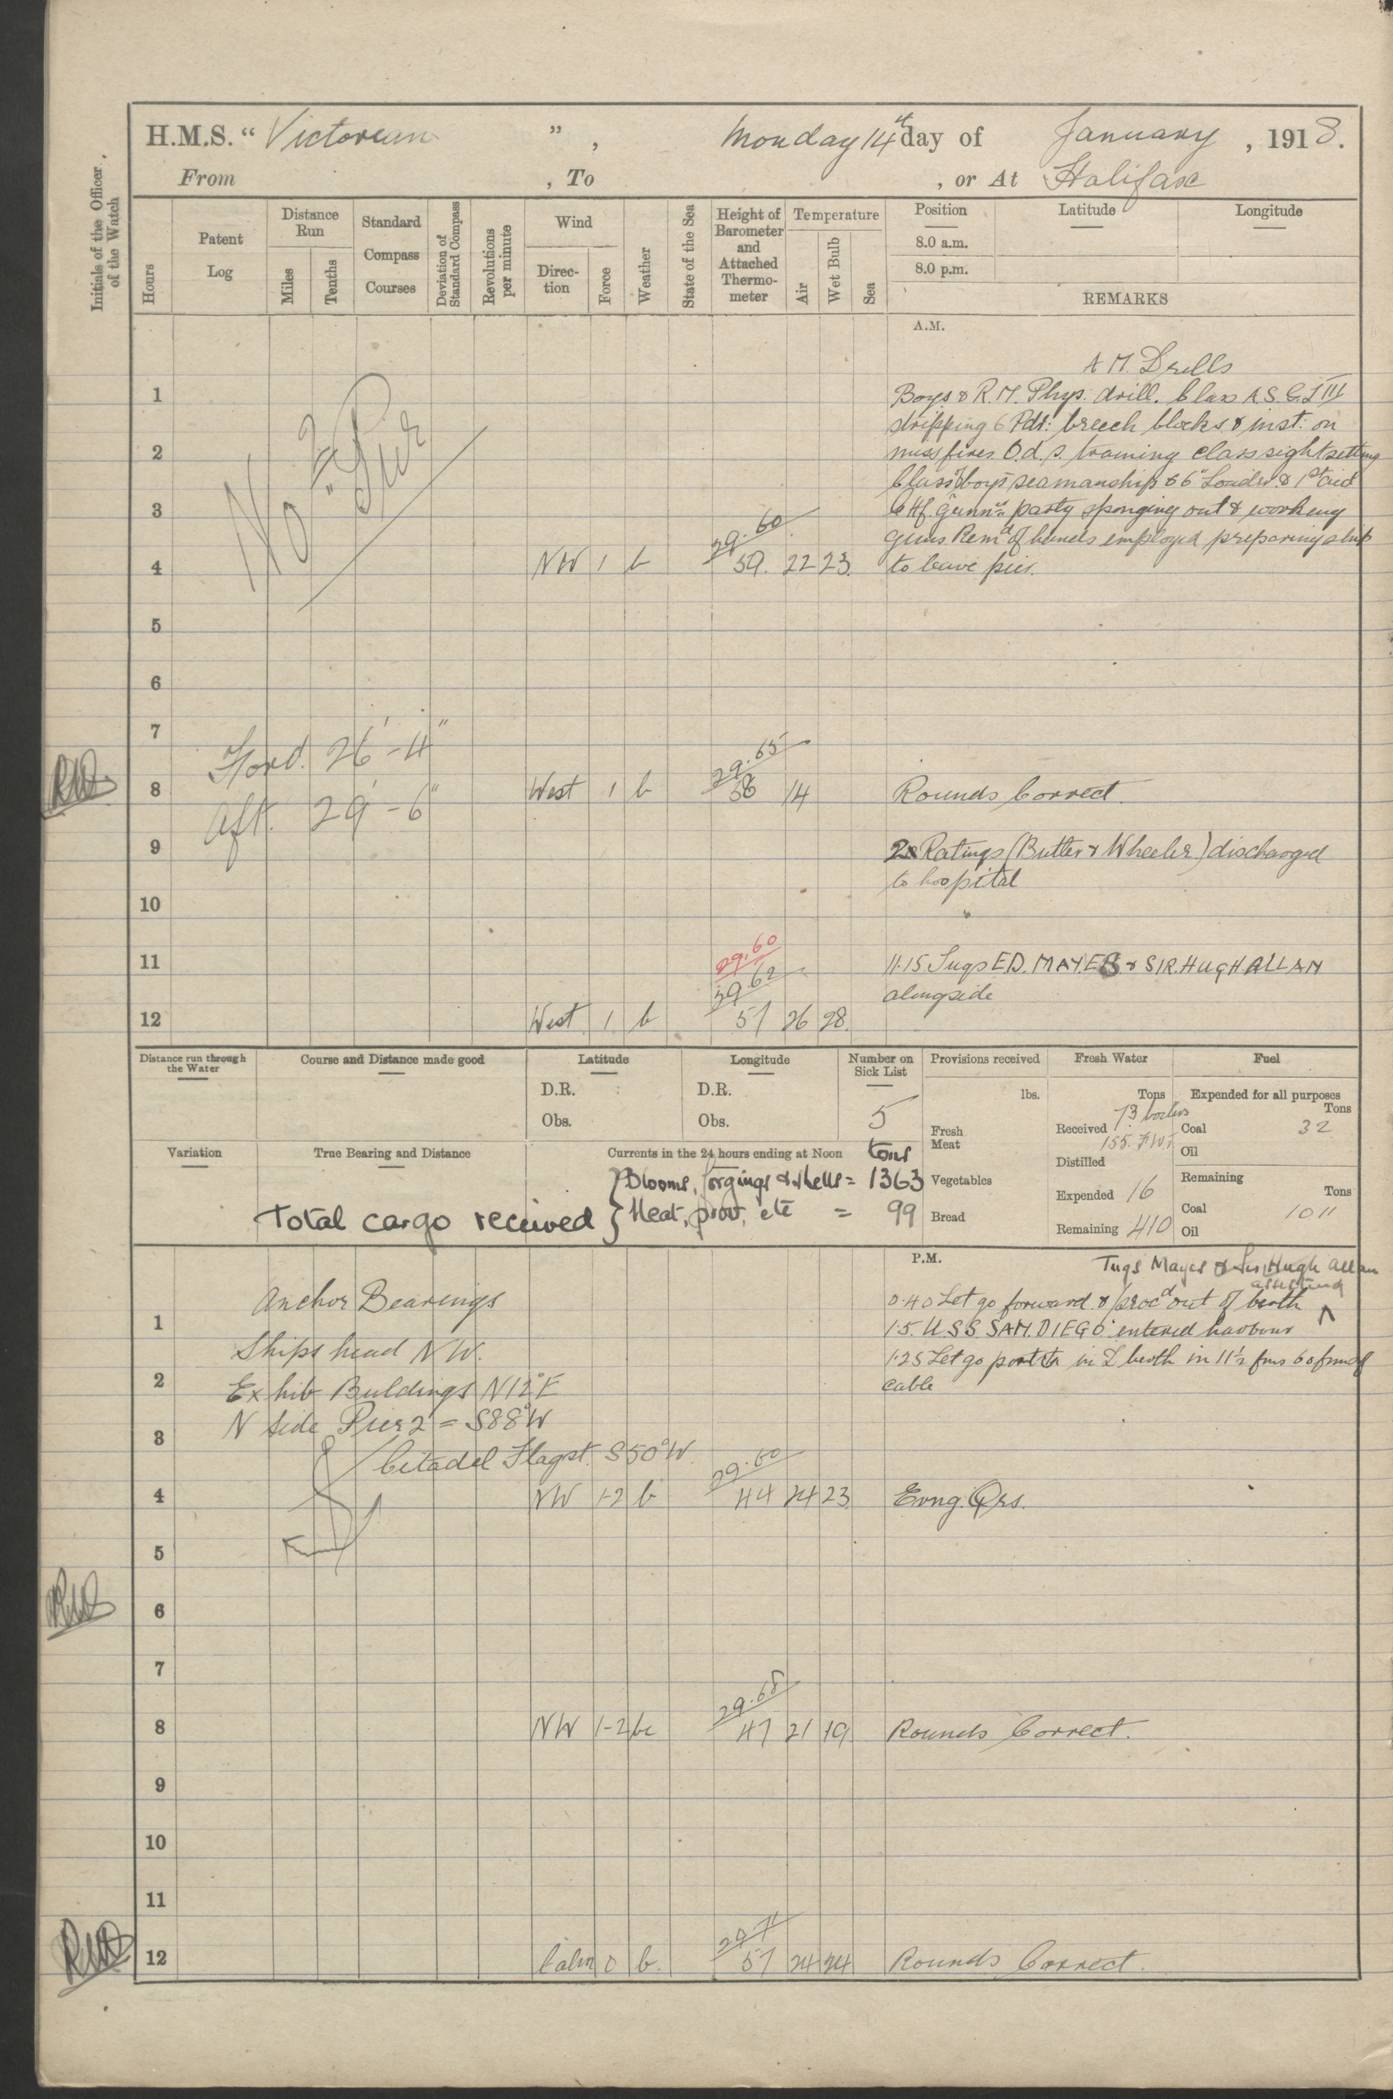 H.M.S. “ Victorian ” , Monday 14th day of January , 1918.
From , To , or At Halifax
Initials of the Officer of the Watch
Hours
Patent Log
Distance Run
Miles
Tenths
Standard Compass Courses
Deviation of Standard Compass
Revolutions per minute
Wind
Direc-tion
Force
Weather
State of the Sea
Height of Barometer and Attached Thermo-meter
Temperature
Air
Wet Bulb
Sea
Position Latitude Longitude
8.0 a.m.
8.0 p.m.
REMARKS
A.M.
A.M. Drills
1 Boys & R.M. Phys. drill. Class A S.G.L III
stripping 6 Pdr: breech blocks & inst: on
2 miss fires O.d.s. training class sightsetting
Class boys seamanship & 6" Loader & 1st aid
3 party sponging out & working
No 2 Pier
guns Remdr of hands employed preparing ship
29.60
4 NW 1 b 59. 22 23 to leave pier.
5
6
7
Ford. 26' - 4"
29.65
RWD 8 West 1 b 58 14 Rounds Correct.
Aft. 29' - 6"
9 2 Ratings (Butler & Wheeler) discharged
to hospital
10
29.60
11 11.15 Tugs ED. MAYES & SIR HUGH ALLAN
29.62
alongside
12 West 1 b 57 26 28
Distance run through the Water
Course and Distance made good
Latitude
D.R.
Obs.
Longitude
D.R.
Obs.
Number on Sick List
5
Provisions received
lbs.
Fresh Meat
Vegetables
Bread
Fresh Water
Tons
Received 73 boilers
155. F.W.T
Distilled
Expended 16
Remaining 410
Fuel
Expended for all purposes
Tons
Coal 32
Oil
Remaining
Tons
Coal 1011
Oil
Variation
True Bearing and Distance
Currents in the 24 hours ending at Noon
tons
Blooms, forgings & shells = 1363
Total cargo received } Meat, prov, etc = 99
P.M.
Tugs Mayes & Sir Hugh Allan
assisting
Anchor Bearings 0.40 Let go forward & procd out of berth
1 1.5. USS SAN DIEGO entered harbour
Ships head NW. 1.25 Let go port in L berth in 11½ fms 60 fms of
2 cable
Exhib Buildings N12°E
N side Pier 2 = S88°W
3
Citadel Flagst. S50°W.
29.60
4 NW 1-2 b 44 24 23 Evng. Qrs.
5
RWD 6
7
29.68
8 NW 1-2 bc 47 21 19 Rounds Correct.
9
10
11
29.71
RWD 12 Calm 0 b. 57 24 24 Rounds Correct.